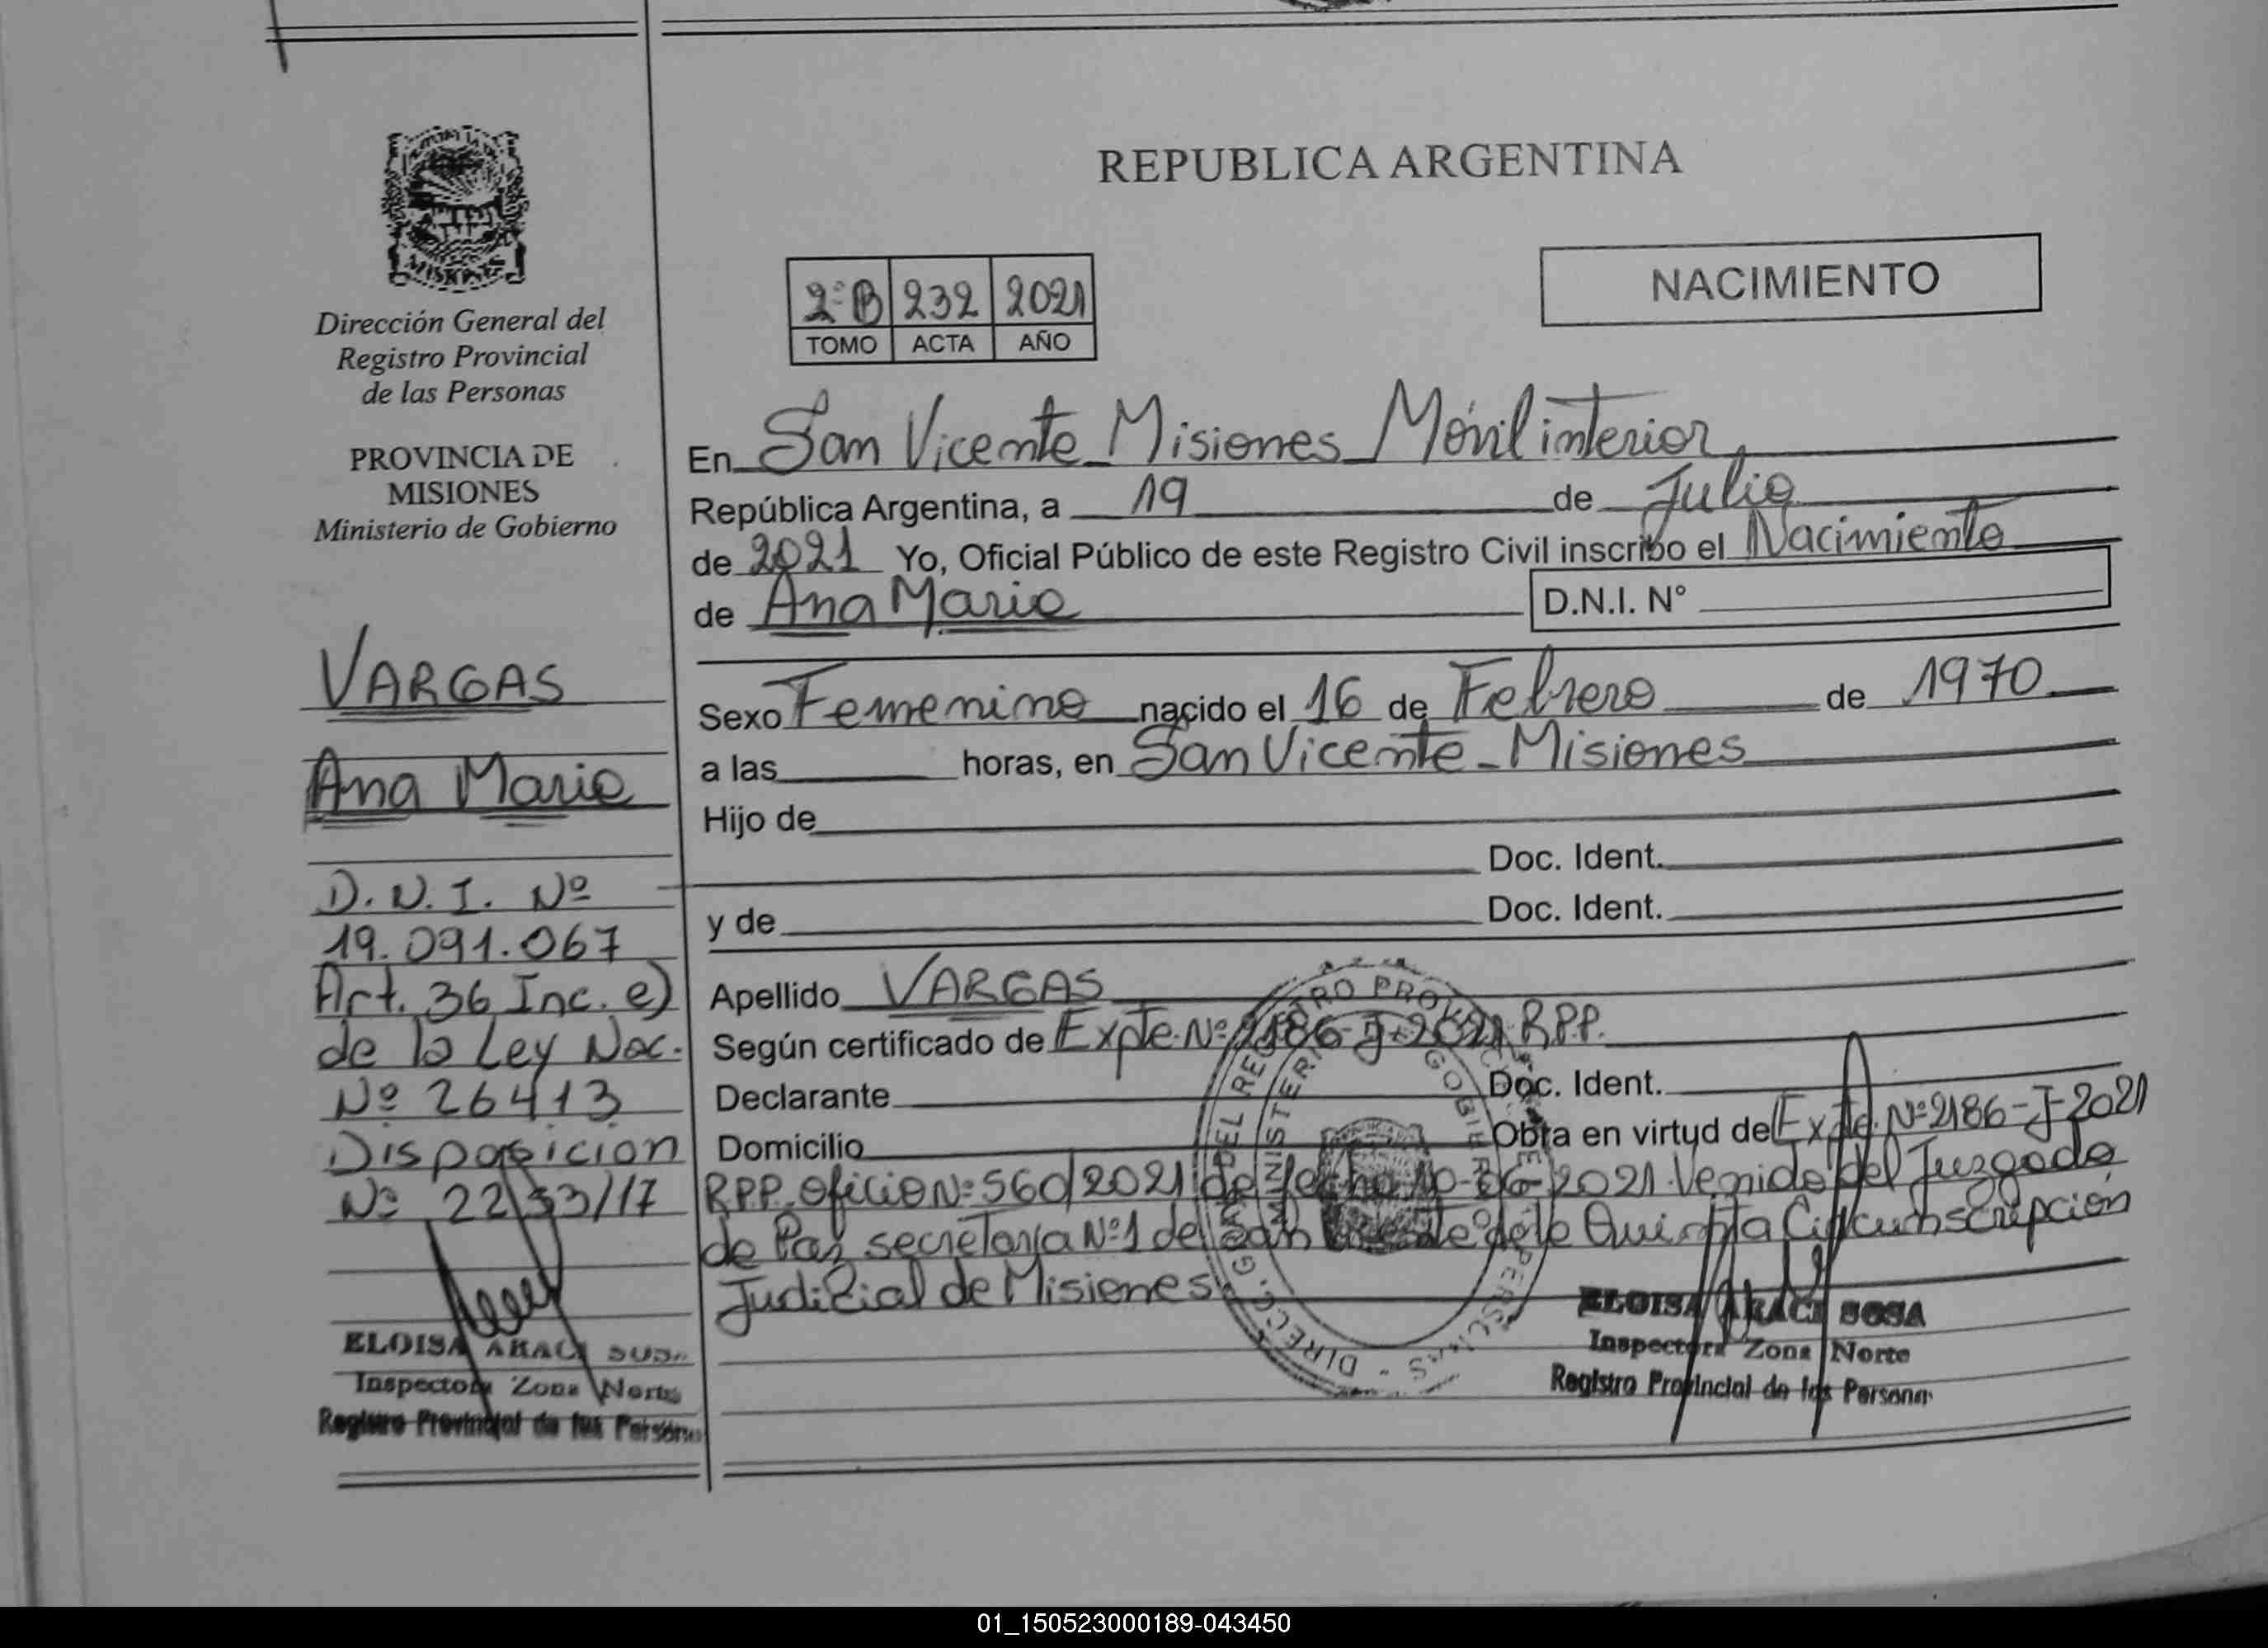 REPUBLICA ARGENTINA
NACIMIENTO
2º B 232 2021
TOMO ACTA AÑO
Dirección General del
Registro Provincial
de las Personas
PROVINCIA DE
MISIONES
Ministerio de Gobierno
VARGAS
Ana Maria
D.N.I. Nº
19.091.067
Art. 36 Inc. e)
de la Ley Nac.
Nº 26413
Disposicion
Nº 2233/17
ELOISA ARACI SOSA
Inspectora Zona Norte
Registro Provincial de las Personas
En San Vicente Misiones Móvil interior
República Argentina, a 19 de Julio
de 2021 Yo, Oficial Público de este Registro Civil inscribo el Nacimiento
de Ana Maria D.N.I. N°
Sexo Femenino nacido el 16 de Febrero de 1970
a las horas, en San Vicente - Misiones
Hijo de
Doc. Ident.
y de Doc. Ident.
Apellido VARGAS
Según certificado de Expte. Nº 2186-J-2021 R.P.P.
Declarante Doc. Ident.
Domicilio Obra en virtud de Expte. Nº 2186-J-2021
R.P.P. oficio Nº 560/2021 de fecha 10-06-2021. Venido del Juzgado
de Paz secretaría Nº 1 de San Vicente de la Quinta Circunscripción
Judicial de Misiones
ELOISA ARACI SOSA
Inspectora Zona Norte
Registro Provincial de las Personas
01_150523000189-043450